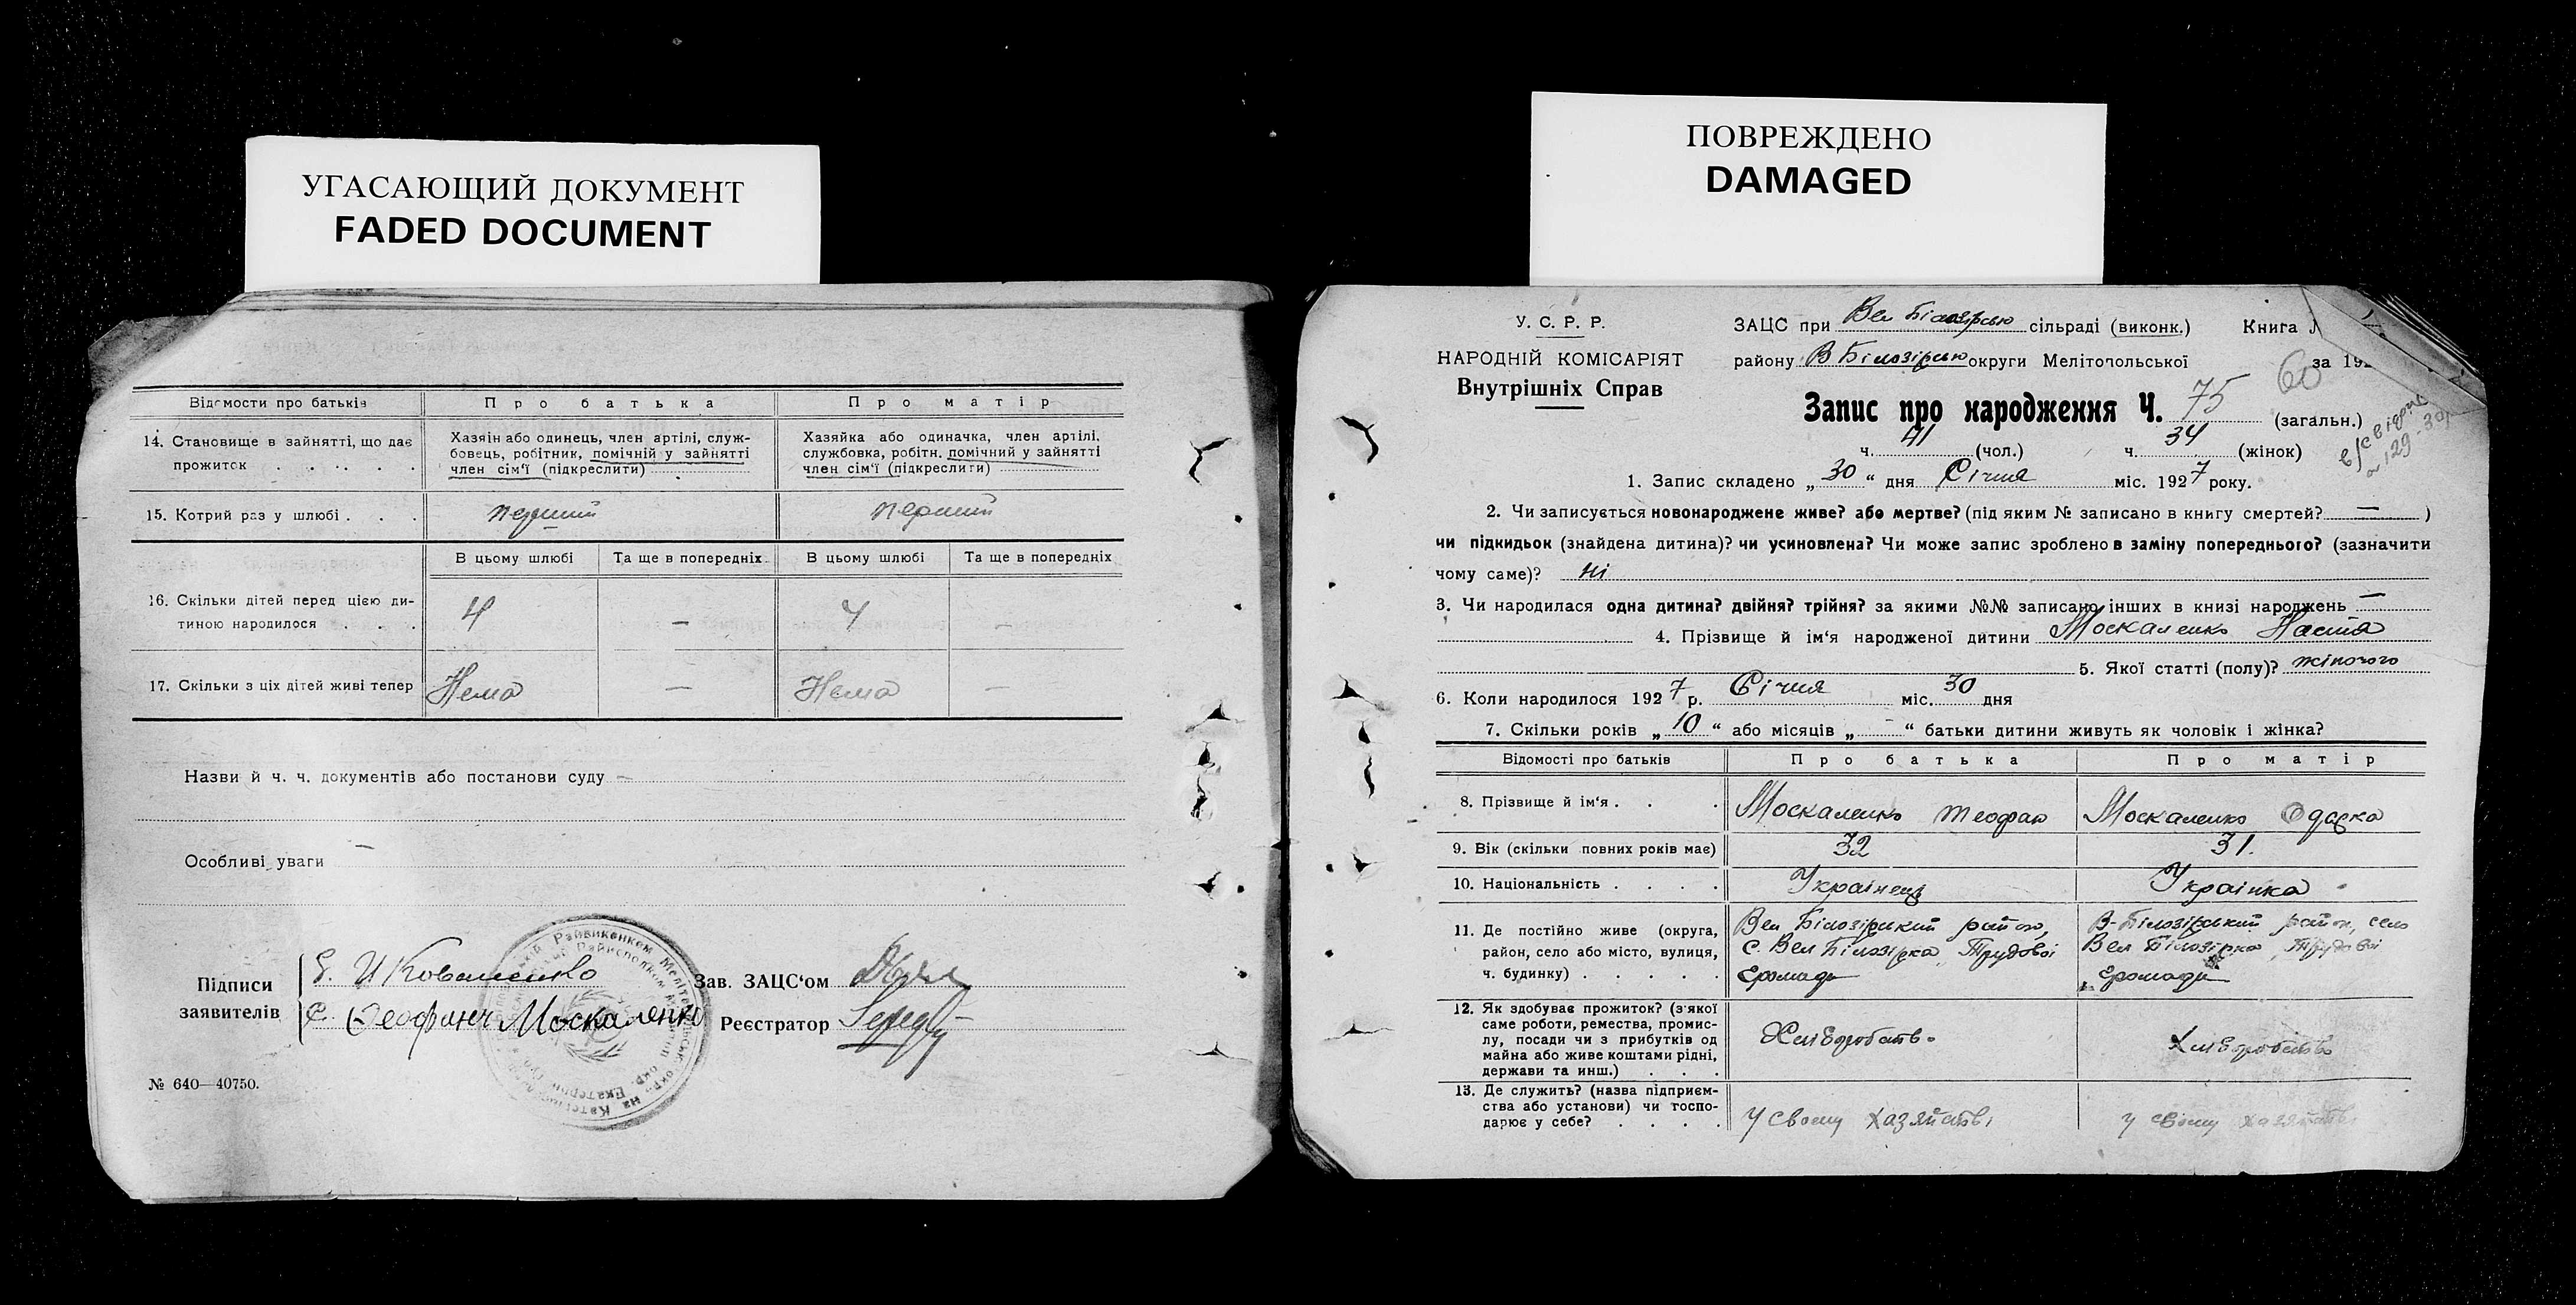 УГАСАЮЩИЙ ДОКУМЕНТ
FADED DOCUMENT
Відомости про батьків
Про батька
Про матір
14. Становище в зайнятті, що дає
прожиток . . . . .
Хазяін або одинець, член артілі, служ-
бовець, робітник, помічній у зайнятті
член сім‘ї (підкреслити)
Хазяйка або одиначка, член артілі,
службовка, робітн. помічний у зайнятті
член сім‘ї (підкреслити)
15. Котрий раз у шлюбі . . .
перший
перший
В цьому шлюбі
Та ще в попередніх
В цьому шлюбі
Та ще в попередніх
16. Скільки дітей перед цією ди-
тиною народилося . . .
4
—
4
—
17. Скільки з ціх дітей живі тепер
Нема
—
Нема
—
Назви й ч. ч. документів або постанови суду —
Особливі уваги —
Підписи
заявителів
Коваленко
Зав. ЗАЦС‘ом
Москаленко
Реєстратор
№ 640—40750.
ПОВРЕЖДЕНО
DAMAGED
У. С. Р. Р.
НАРОДНІЙ КОМІСАРІЯТ
Внутрішніх Справ
ЗАЦС при Вел Білозірською сільраді (виконк.) Книга
району В Білозірською округи Мелітопольської за 192
60
Запис про народження Ч. 75 (загальн.)
ч. 41 (чол.) ч. 34 (жінок)
1. Запис складено „ 30 “ дня Січня міс. 1927 року.
2. Чи записується новонароджене живе? або мертве? (під яким № записано в книгу смертей? — )
чи підкидьок (знайдена дитина)? чи усиновлена? Чи може запис зроблено в заміну попереднього? (зазначити
чому саме)? ні
3. Чи народилася одна дитина? двійня? трійня? за якими №№ записано інших в книзі народжень —
4. Прізвище й ім‘я народженої дитини Москаленко Настя
5. Якої статті (полу)? жіночого
6. Коли народилося 1927 р. Січня міс. 30 дня
7. Скільки років „ 10 “ або місяців „ — “ батьки дитини живуть як чоловік і жінка?
Відомості про батьків
Про батька
Про матір
8. Прізвище й ім‘я . . .
Москаленко Теофан
Москаленко Одарка
9. Вік (скільки повних років має)
32
31.
10. Національність . . . .
Украінець
Украінка
11. Де постійно живе (округа,
район, село або місто, вулиця,
ч. будинку) . . . . .
Вел Білозірський район,
с. Вел Білозірка Трудової
громади
В-Білозірський район, село
Вел Білозірка, Трудової
громади
12. Як здобуває прожиток? (з‘якої
саме роботи, ремества, промис-
лу, посади чи з прибутків од
майна або живе коштами рідні,
держави та инш.) . . .
Хліборобств.
Хліборобство
13. Де служить? (назва підприєм-
ства або установи) чи госпо-
дарює у себе? . . . .
У своему хазяйстві
у своему хазяйстві